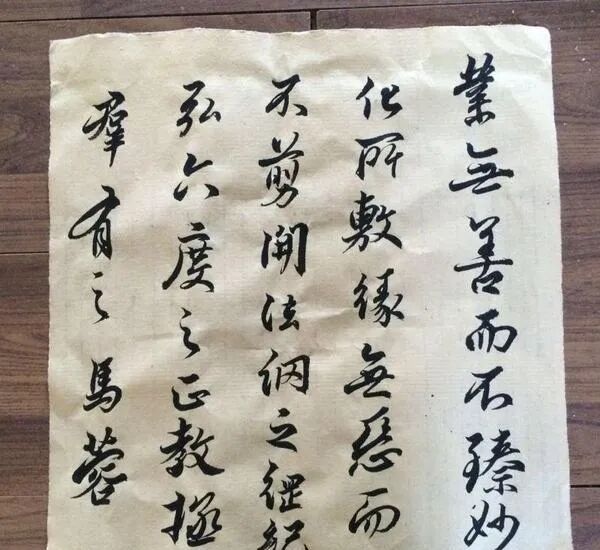 業無善而不臻妙
化所敷緣無惡而
不剪開法綱之綱紀
弘六度之正教拯
羣有之